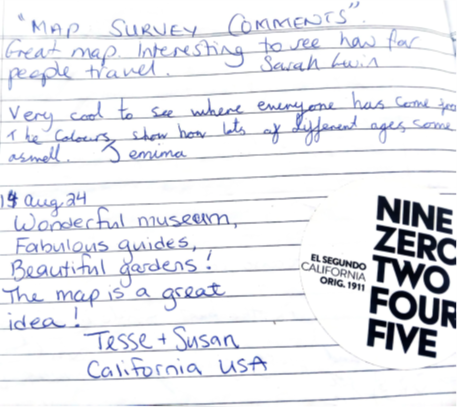 "MAP SURVEY COMMENTS".
Great map. Interesting to see how far
people travel. Sarah Lwin
Very cool to see where everyone has come fro
The colours show how lots of different ages come
aswell. Jemima
14 aug 24
Wonderful museum,
Fabulous guides,
Beautiful gardens!
The map is a great
idea!
Tesse + Susan
California USA
NINE
ZERO
TWO
FOUR
FIVE
EL SEGUNDO
CALIFORNIA
ORIG. 1911